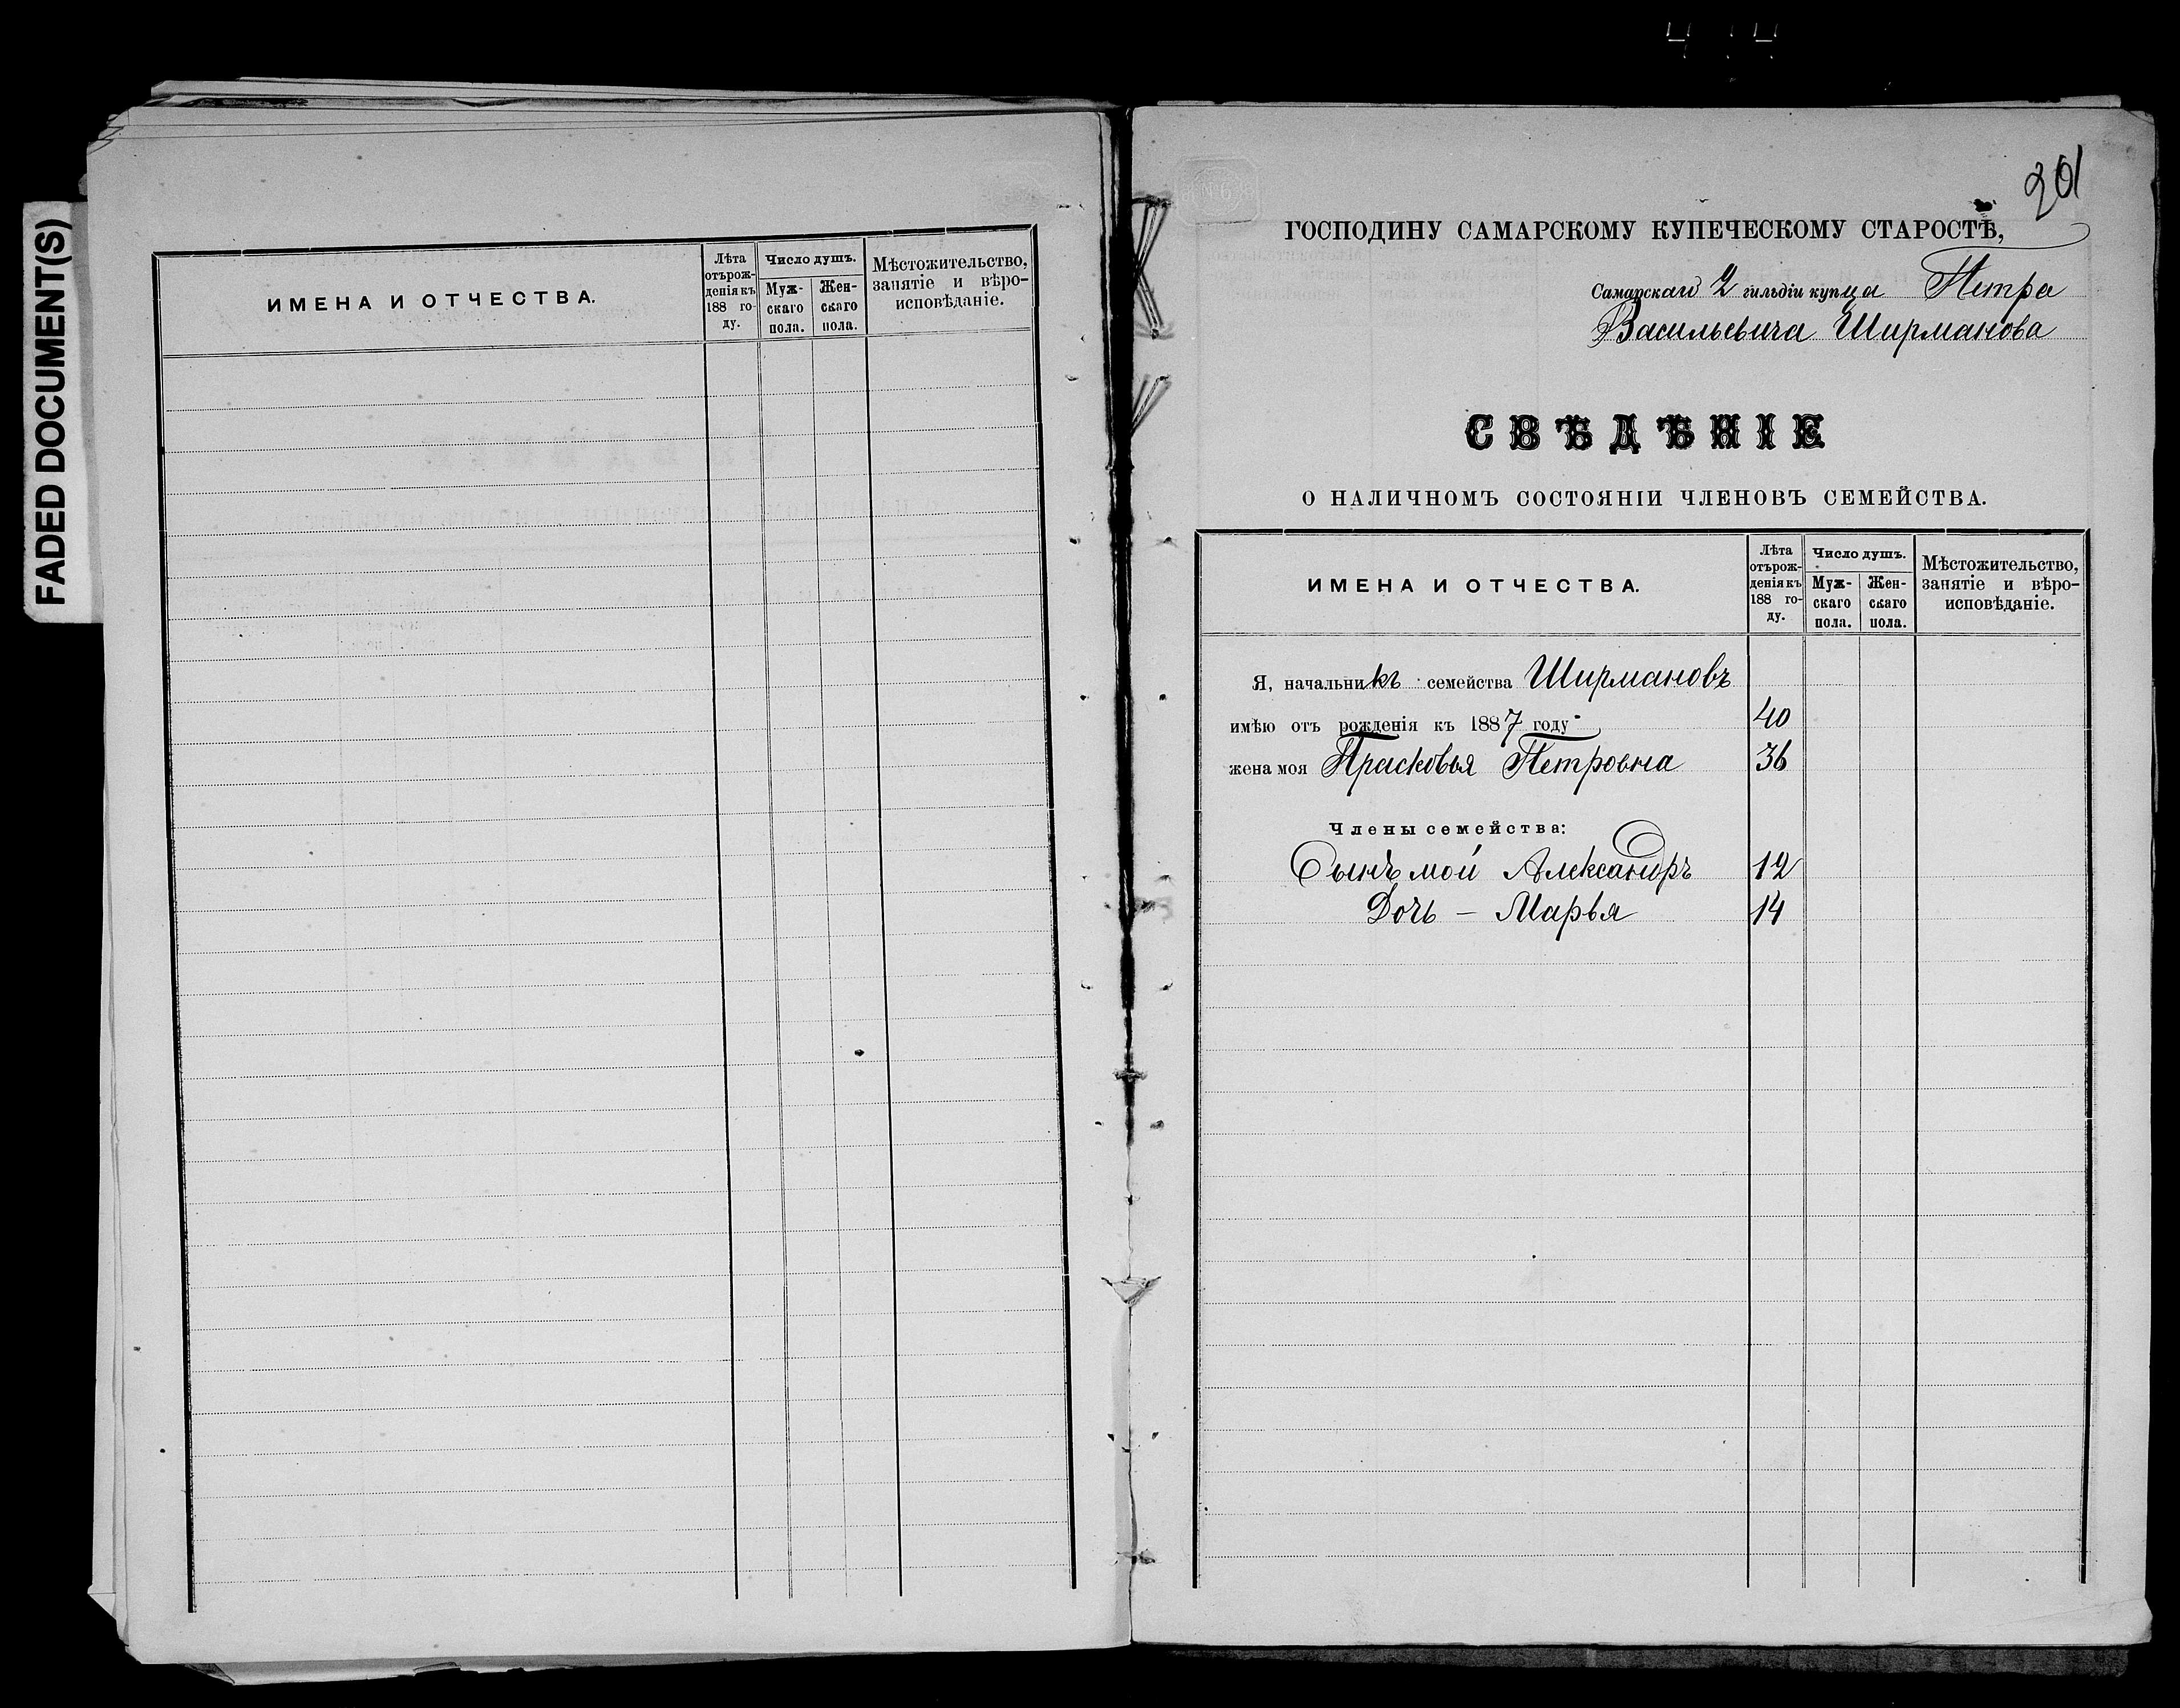 FADED DOCUMENT(S)
ИМЕНА И ОТЧЕСТВА.
Лѣта
отърож-
денія къ
188 го-
ду.
Число душъ.
Муж-
скаго
пола.
Жен-
скаго
пола.
Мѣстожительство,
занятіе и вѣро-
исповѣданіе.
201
ГОСПОДИНУ САМАРСКОМУ КУПЕЧЕСКОМУ СТАРОСТѢ,
Самарскаго 2 гильдіи купца Петра
Васильевича Ширманова
СВѢДѢНІЕ
О НАЛИЧНОМЪ СОСТОЯНІИ ЧЛЕНОВЪ СЕМЕЙСТВА.
ИМЕНА И ОТЧЕСТВА.
Лѣта
отърож-
денія къ
188 го-
ду.
Число душъ.
Муж-
скаго
пола.
Жен-
скаго
пола.
Мѣстожительство,
занятіе и вѣро-
исповѣданіе.
Я, начальникъ семейства Ширмановъ
имѣю отъ рожденія къ 1887 году 40
жена моя Прасковья Петровна 36
Члены семейства:
Сынъ мой Александръ 12
Дочь — Марья 14